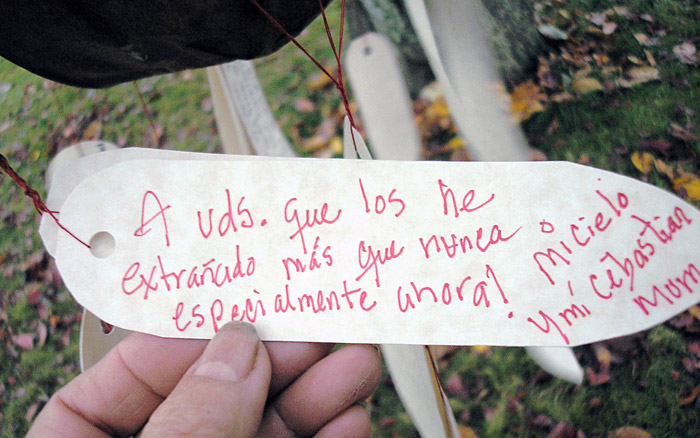 A uds. que los he
extrañado más que nunca
especialmente ahora!
Mi cielo
y mi Cebastian
Mom